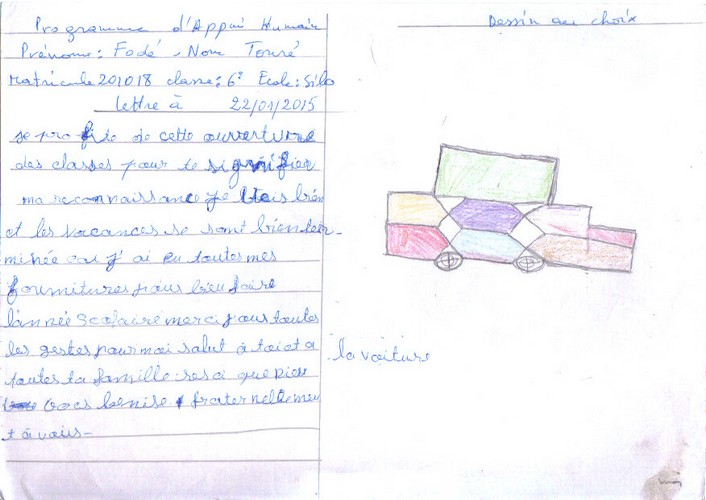 Programme d'Appui Humain
Prénom: Fodé , Nom Touré
Matricule 201018 classe: 6e Ecole: Silo
lettre à 22/01/2015
je profite de cette ouverture
des classes pour te signifier
ma reconnaissance je vais bien
et les vacances se sont bien ter-
minée car j'ai eu toutes mes
fournitures pour bien faire
l'année scolaire merci pour toutes
les gestes pour moi salut à toi et a
toutes ta famille que Dieu
vous benise fraternellemen
t à vous-
Dessin au choix
la voiture